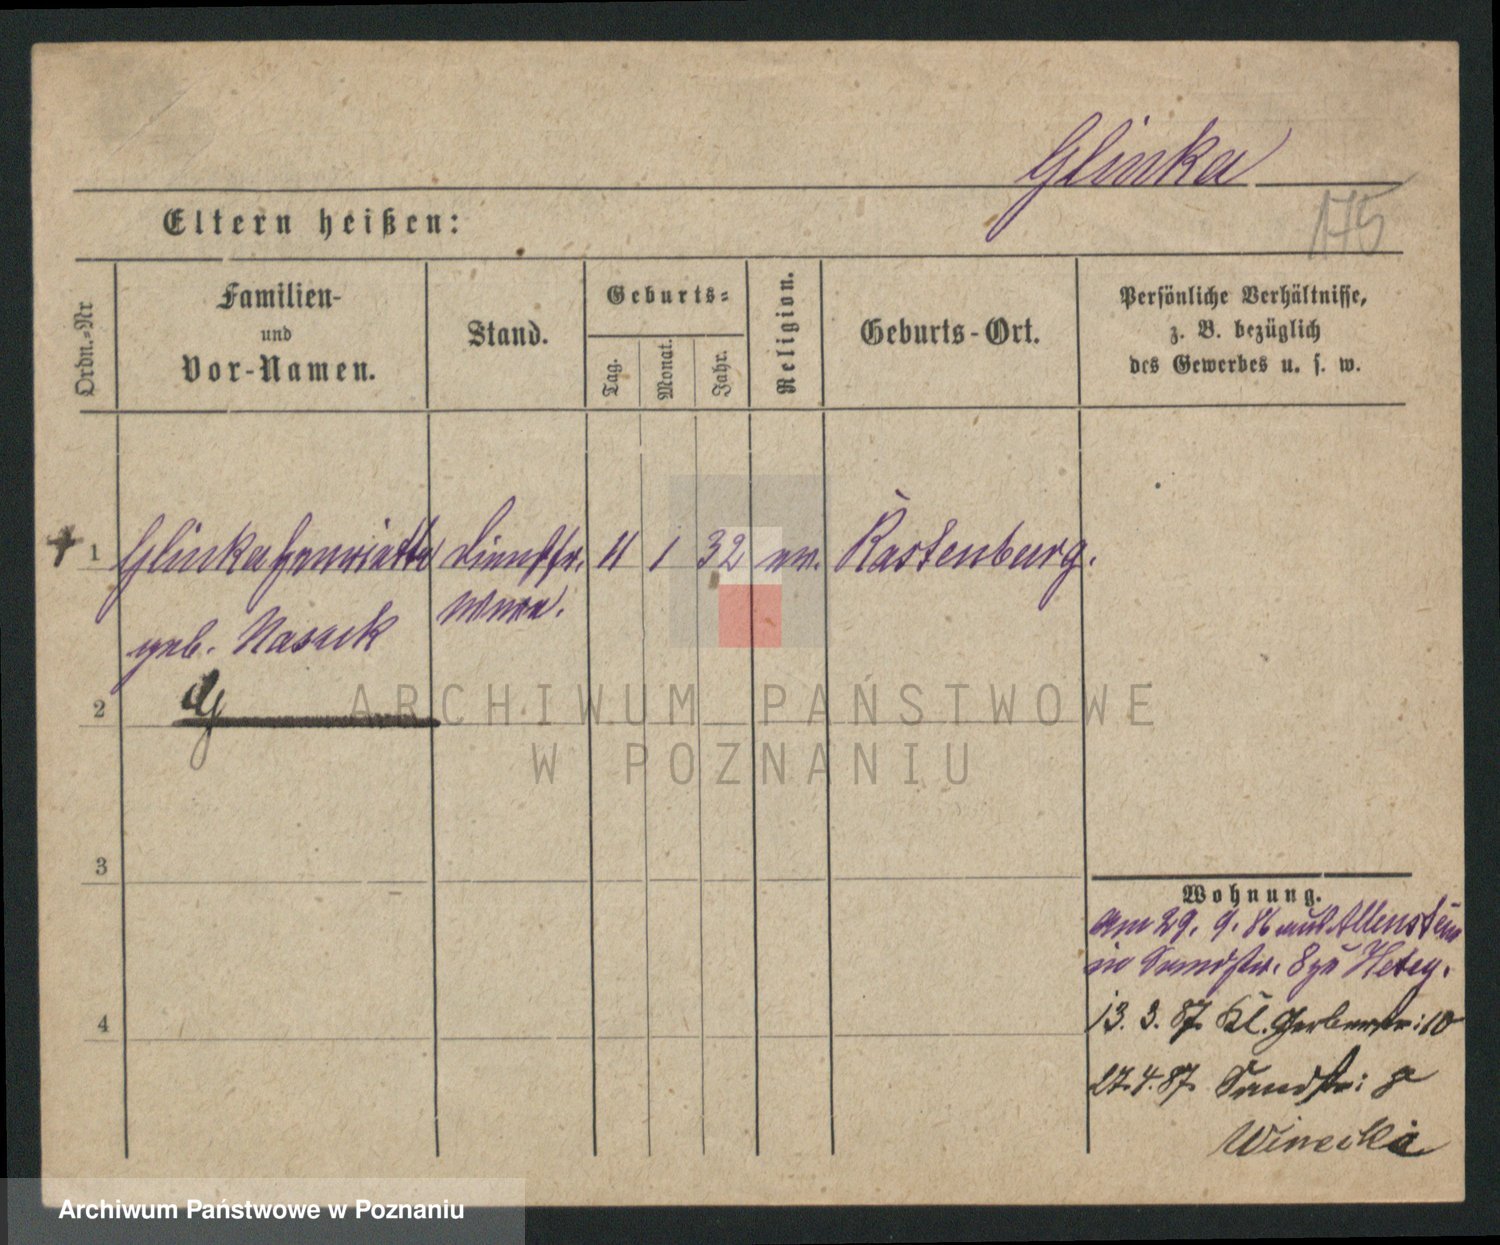 Glinka
175
Eltern heißen:
Ordn.-Nr
Familien-
und
Vor-Namen.
Stand.
Geburts-
Tag.
Monat.
Jahr.
Religion.
Geburts-Ort.
Persönliche Verhältnisse,
z. B. bezüglich
des Gewerbes u. s. w.
1 Glinka Henriette 11 1 32 ev. Rastenburg.
geb.
2
3
4
Wohnung.
am 29. 9. 86 aus Allenstein
in Sandstr. 8 zu
13. 3. 87. Kl. Gerberstr: 10
27.4.87. Sandstr: 8
ARCHIWUM PAŃSTWOWE
W POZNANIU
Archiwum Państwowe w Poznaniu